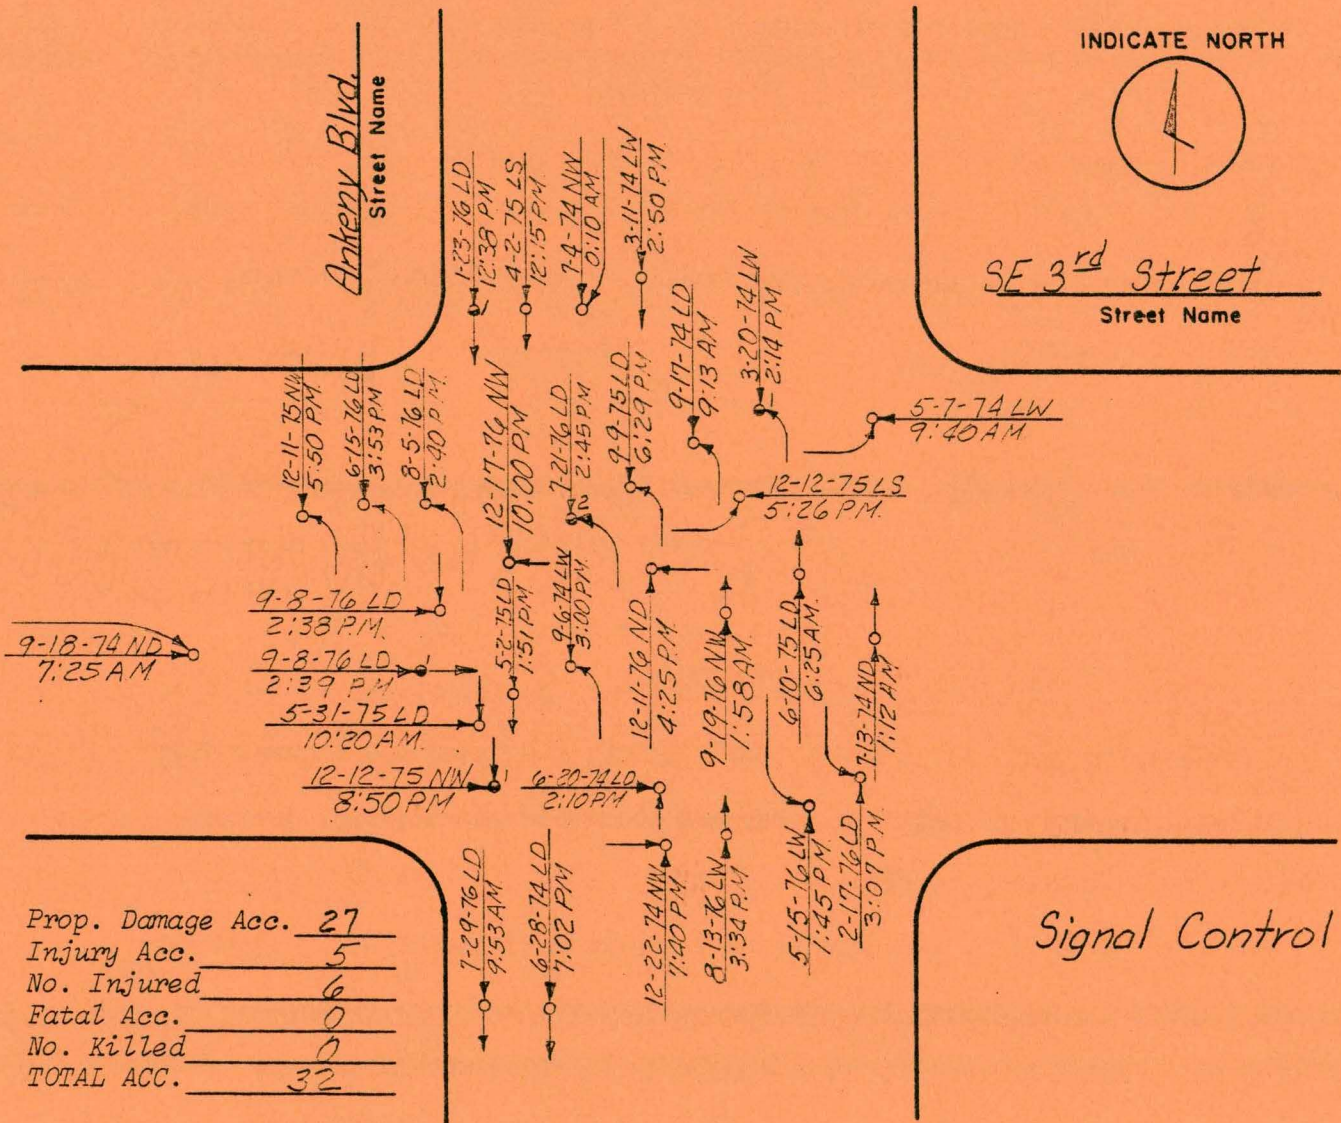 INDICATE NORTH
Ankeny Blvd.
Street Name
SE 3rd Street
Street Name
1-23-76 LD
12:38 PM
4-2-75 LS
12:15 PM
7-4-74 NW
0:10 AM
3-11-74 LW
2:50 PM.
9-17-74 LD
9:13 AM
3-20-74 LW
2:14 PM
12-11-75 NW
5:50 PM.
6-15-76 LD
3:53 PM
8-5-76 LD
2:40 P.M.
12-17-76 NW
10:00 PM
7-21-76 LD
2:45 PM
2
9-9-75 LD
6:29 PM
5-7-74 LW
9:40 AM.
12-12-75 LS
5:26 P.M.
9-8-76 LD
2:38 P.M.
9-18-74 ND
7:25 AM
9-8-76 LD
2:39 P.M.
1
5-31-75 LD
10:20 A.M.
12-12-75 NW
8:50 PM
1
5-2-75 LD
1:51 PM
9-6-74 LW
3:00 P.M.
12-11-76 ND
4:25 P.M.
9-19-76 NW
1:58 A.M.
6-10-75 LD
6:25 A.M.
7-13-74 ND
1:12 A.M.
6-20-74 LD
2:10 PM
7-29-76 LD
9:53 AM
6-28-74 LD
7:02 PM
12-22-74 NW
7:40 PM
8-13-76 LW
3:34 P.M.
5-15-76 LW
1:45 P.M.
2-17-76 LD
3:07 P.M.
Prop. Damage Acc. 27
Injury Acc. 5
No. Injured 6
Fatal Acc. 0
No. Killed 0
TOTAL ACC. 32
Signal Control